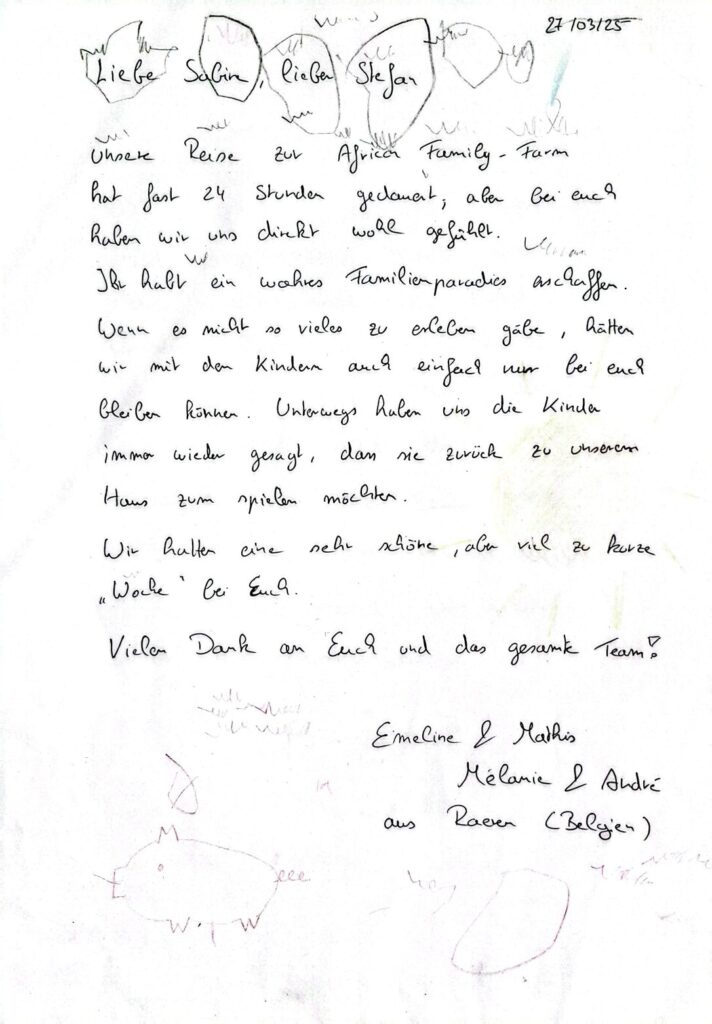 27/03/25
Liebe Sabine, lieber Stefan
unsere Reise zur African Family-Farm
hat fast 24 Stunden gedauert, aber bei euch
haben wir uns direkt wohl gefühlt.
Ihr habt ein wahres Familienparadies erschaffen.
Wenn es nicht so vieles zu erleben gäbe, hätten
wir mit den Kindern auch einfach nur bei euch
bleiben können. Unterwegs haben uns die Kinder
immer wieder gesagt, dass sie zurück zu unserem
Haus zum spielen möchten.
Wir hatten eine sehr schöne, aber viel zu kurze
„Woche“ bei Euch.
Vielen Dank an Euch und das gesamte Team!
Emeline & Mathis
Mélanie & André
aus Raeren (Belgien)